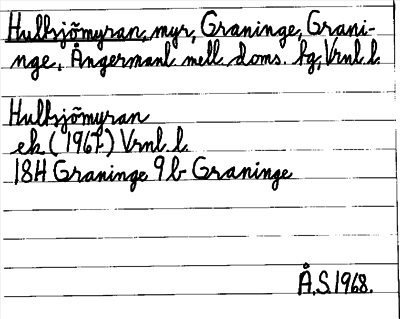 Hulksjömyran, myr, Graninge, Grani-
nge, Ångermanl mell doms. hg, Vrnl l.
Hulksjömyran
ek (1967) Vrnl l.
18H Graninge 9b Graninge
Å.S. 1968.